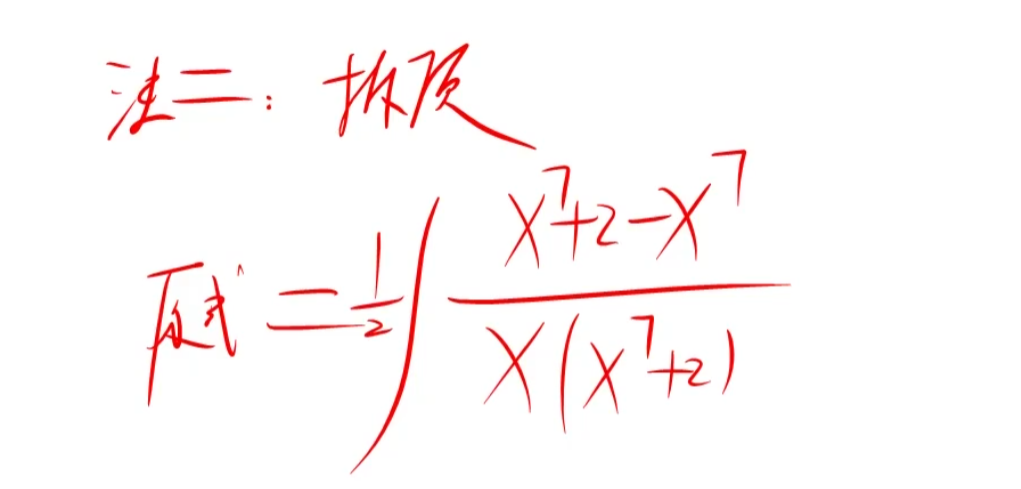 法二：拆项
原式 = 1/2 ∫ (x⁷+2-x⁷)/(x(x⁷+2))